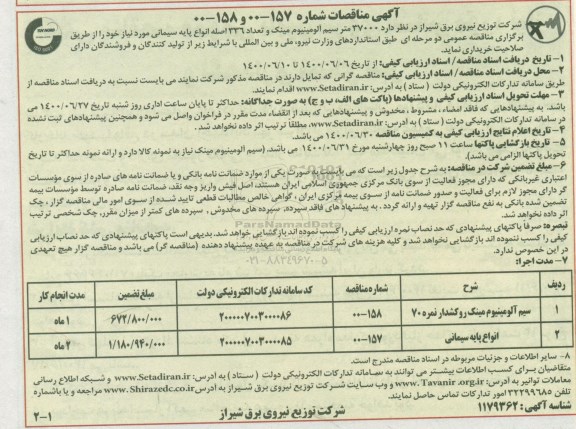 آگهی مناقصات شماره ۱۵۷-۰۰ و ۱۵۸-۰۰
شرکت توزیع نیروی برق شیراز در نظر دارد ۳۷۰۰۰ متر سیم آلومینیوم مینک و تعداد ۳۳۶ اصله انواع پایه سیمانی مورد نیاز خود را از طریق
برگزاری مناقصه عمومی دو مرحله ای طبق استانداردهای وزارت نیرو، ملی و بین المللی با شرایط زیر از تولید کنندگان و فروشندگان دارای
صلاحیت خریداری نماید.
۱- تاریخ دریافت اسناد مناقصه / اسناد ارزیابی کیفی: از تاریخ ۱۴۰۰/۰۶/۰۶ تا ۱۴۰۰/۰۶/۱۰
۲- محل دریافت اسناد مناقصه / اسناد ارزیابی کیفی: مناقصه گرانی که تمایل دارند در مناقصه مذکور شرکت نمایند می بایست نسبت به دریافت اسناد مناقصه از
طریق سامانه تدارکات الکترونیکی دولت (ستاد) به آدرس: www.Setadiran.ir اقدام نمایند.
۳- مهلت تحویل اسناد ارزیابی کیفی و پیشنهادها (پاکت های الف، ب و ج) به صورت جداگانه: حداکثر تا پایان ساعت اداری روز شنبه تاریخ ۱۴۰۰/۰۶/۲۷ می
باشد. به پیشنهادهایی که فاقد امضاء، مشروط، مخدوش و پیشنهادهایی که بعد از انقضاء مدت مقرر در فراخوان واصل می شود و همچنین پیشنهادهای ثبت نشده
در سامانه تدارکات الکترونیکی دولت (ستاد) به آدرس: www.Setadiran.ir، مطلقا ترتیب اثر داده نخواهد شد.
۴- تاریخ اعلام نتایج ارزیابی کیفی به کمیسیون مناقصه ۱۴۰۰/۰۶/۳۰ می باشد.
۵- تاریخ بازگشایی پاکتها ساعت ۱۱ صبح روز چهارشنبه مورخ ۱۴۰۰/۰۶/۳۱ می باشد. (سیم آلومینیوم مینک نیاز به نمونه کالا دارد و ارائه نمونه حداکثر تا تاریخ
تحویل پاکتها الزامی می باشد).
۶- مبلغ تضمین شرکت در مناقصه: به شرح جدول زیر است که می بایست به صورت یکی از موارد ضمانت نامه بانکی و یا ضمانت نامه های صادره از سوی مؤسسات
اعتباری غیربانکی که دارای مجوز فعالیت از سوی بانک مرکزی جمهوری اسلامی ایران هستند، اصل فیش واریز وجه نقد، ضمانت نامه صادره توسط مؤسسات بیمه
گر دارای مجوز لازم برای فعالیت و صدور ضمانت نامه از سوی بیمه مرکزی ایران، گواهی خالص مطالبات قطعی تایید شده از سوی امور مالی مناقصه گزار، چک
تضمین شده بانکی به نفع مناقصه گزار تهیه و ارائه گردد. به پیشنهاد های فاقد سپرده، سپرده های مخدوش، سپرده های کمتر از میزان مقرر، چک شخصی ترتیب
اثر داده نخواهد شد.
تبصره: صرفاً پاکتهای پیشنهادی که حد نصاب نمره ارزیابی کیفی را کسب نموده اند بازگشایی خواهد شد. بدیهی است پاکتهای پیشنهادی که حد نصاب ارزیابی
کیفی را کسب ننموده اند بازگشایی نخواهد شد و کلیه هزینه های شرکت در مناقصه به عهده پیشنهاد دهنده (مناقصه گر) می باشد و مناقصه گزار هیچ تعهدی
در این خصوص ندارد.
ParsNamadData
۰۲۱-۸۸۳۴۹۶۷۰-۵
۷- مدت اجرا:
ردیف شرح شماره مناقصه کد سامانه تدارکات الکترونیکی دولت مبلغ تضمین مدت انجام کار
۱ سیم آلومینیوم مینک روکشدار نمره ۷۰ ۱۵۸-۰۰ ۲۰۰۰۰۰۷۰۰۳۰۰۰۰۸۶ ۶۷۲/۸۰۰/۰۰۰ ۱ ماه
۲ انواع پایه سیمانی ۱۵۷-۰۰ ۲۰۰۰۰۰۷۰۰۳۰۰۰۰۸۵ ۱/۱۸۰/۹۴۰/۰۰۰ ۲ ماه
۸- سایر اطلاعات و جزئیات مربوطه در اسناد مناقصه مندرج است.
متقاضیان برای کسب اطلاعات بیشتر می توانند به سامانه تدارکات الکترونیکی دولت (ستاد) به آدرس: www.Setadiran.ir و شبکه اطلاع رسانی
معاملات توانیر به آدرس: www.Tavanir.org.ir و وب سایت شرکت توزیع نیروی برق شیراز به آدرس www.Shirazedc.co.ir مراجعه و یا باشماره
تلفن ۳۲۲۹۹۶۸۵ امور تدارکات تماس حاصل نمایند.
شناسه آگهی: ۱۱۷۹۳۶۲
شرکت توزیع نیروی برق شیراز
۲-۱